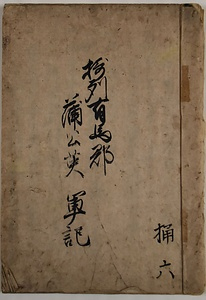 摂州有馬郡
蒲公英軍記
桶六